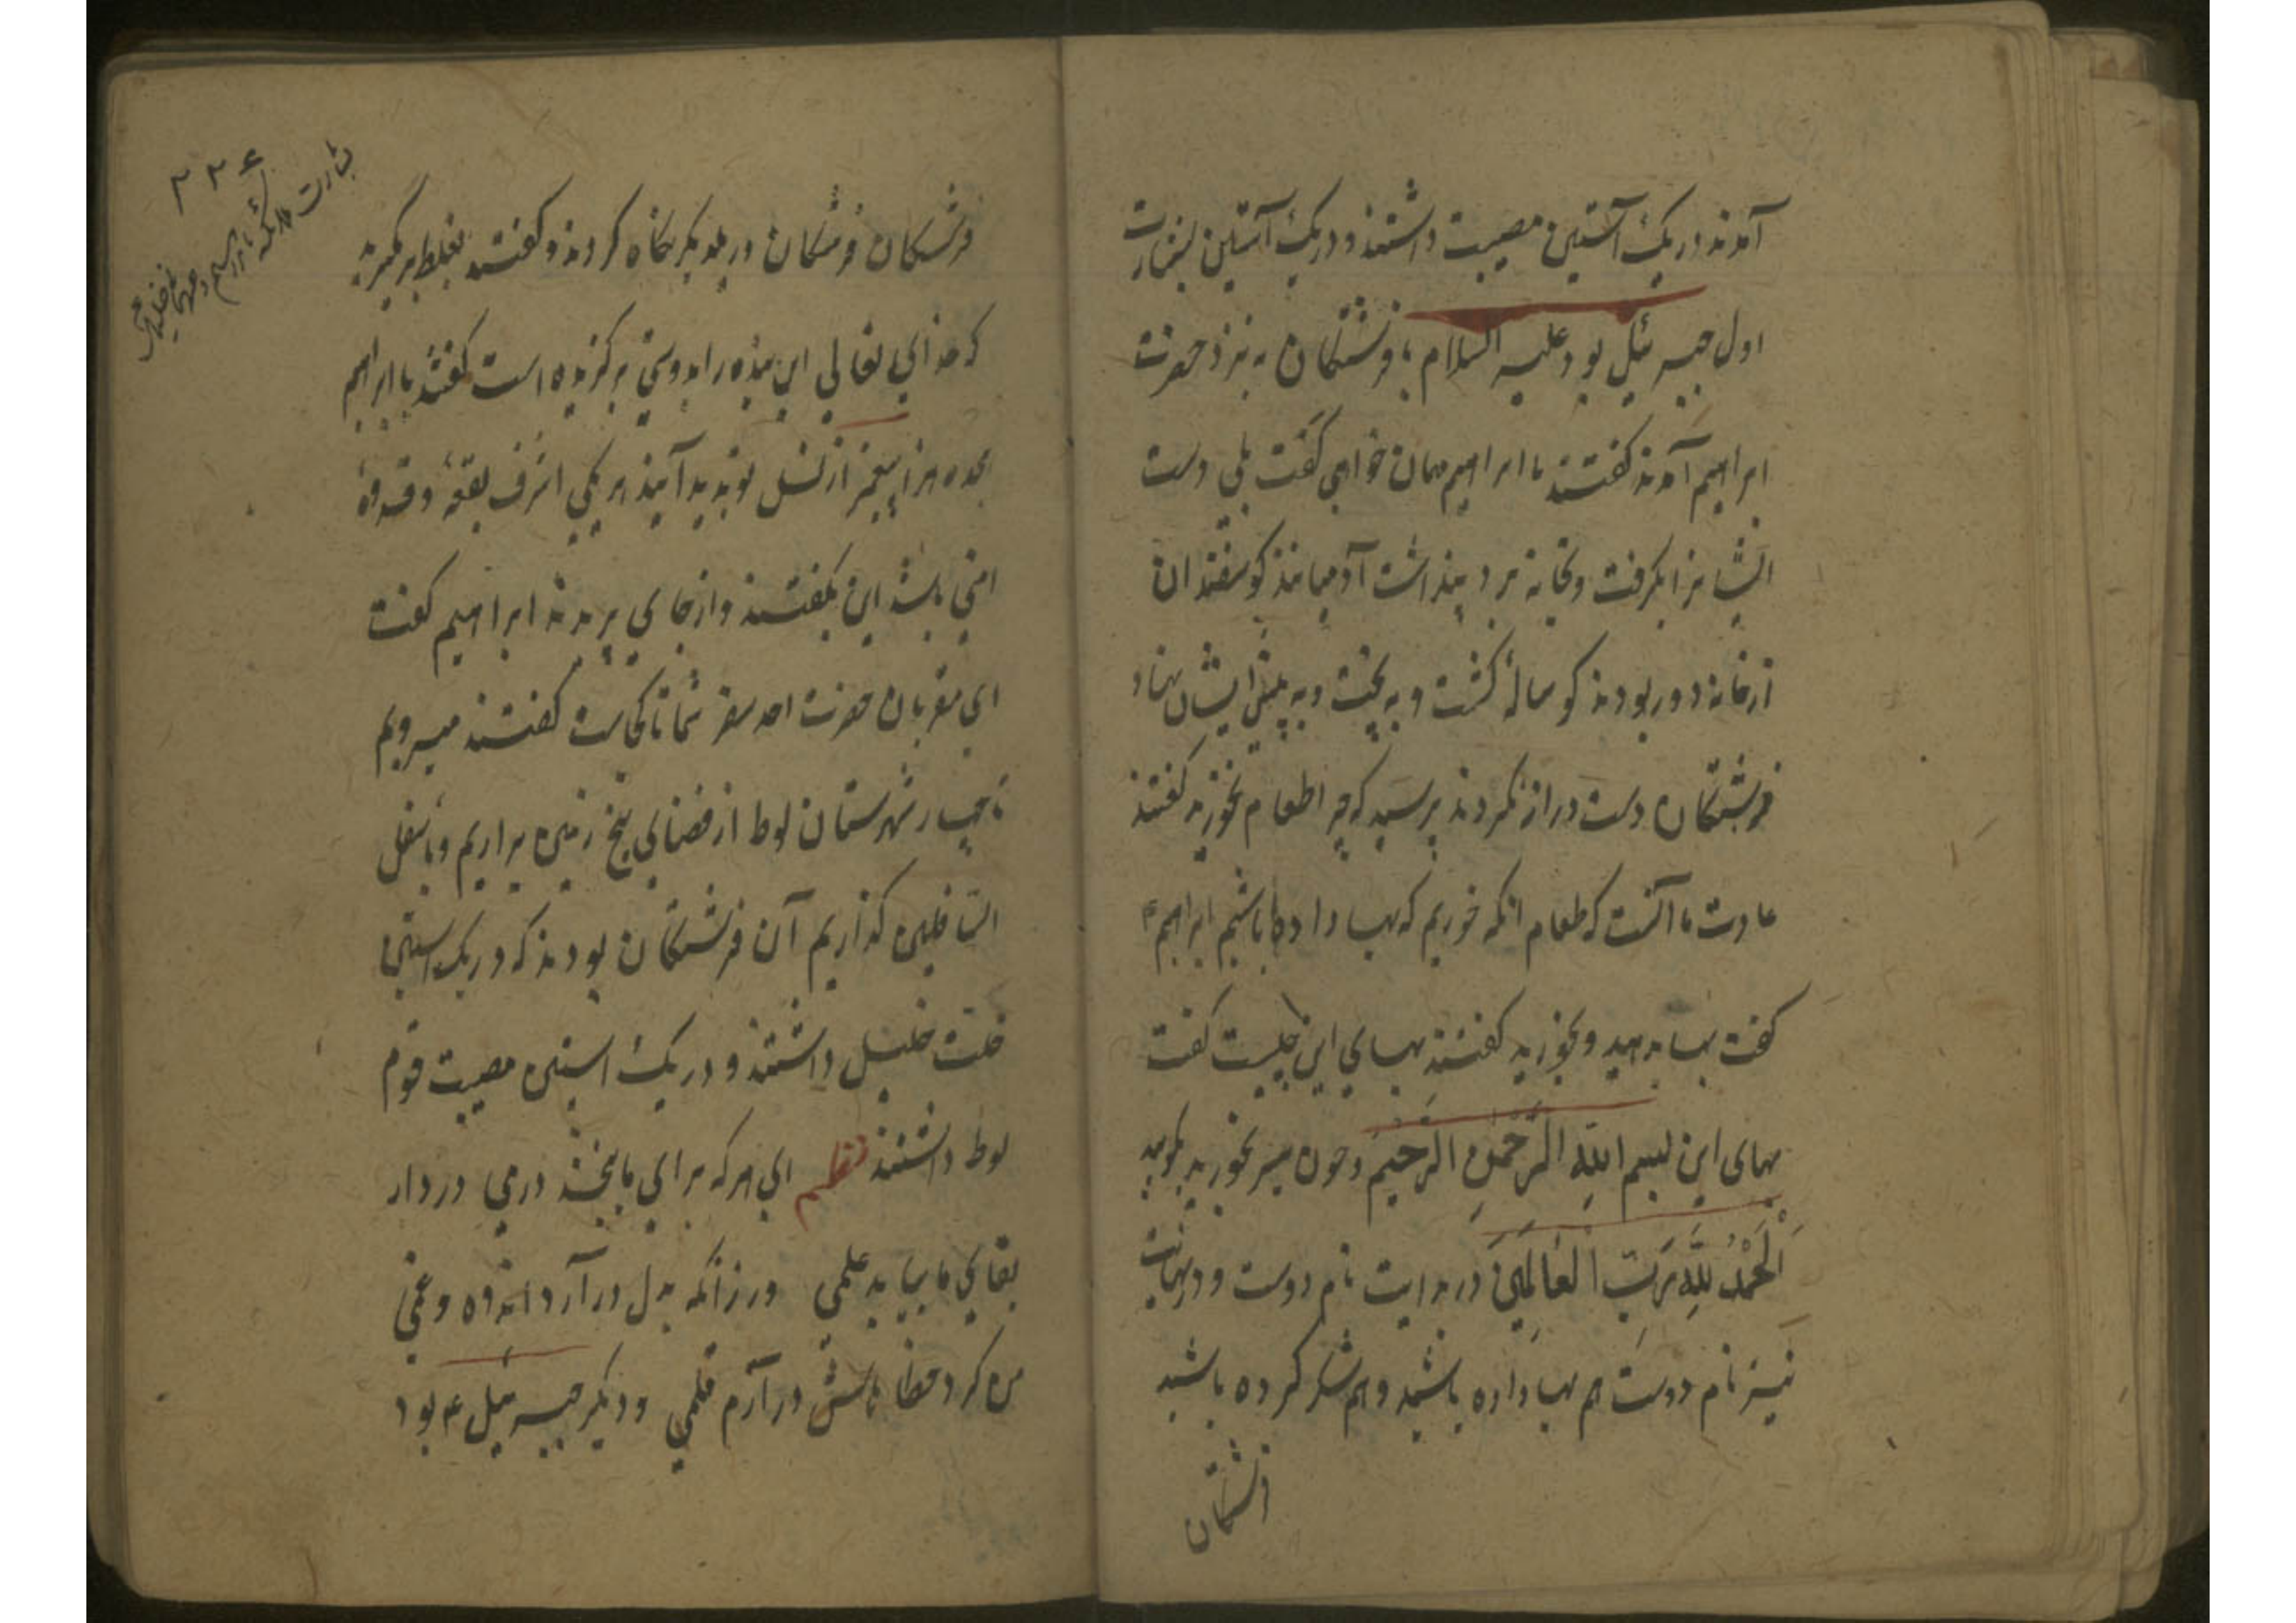 آمدند در یک آستین مصیبت داشتند و در یک آستین بشارت
اول جبرئیل بود علیه السلام با فرشتگان به نزد حضرت
ابراهیم آمدند کفتند یا ابراهیم مهمان خواهی کفت بلی دست
ایشانرا بکرفت و بخانه برد پنداشت آدمیانند کوسفندان
از خانه دور بودند کوساله کشت و به پخت و به پیش ایشان نهاد
فرشتکان دست دراز نکردند پرسید که چرا طعام نخورید کفتند
عادت ما آنست که طعام انکه خوریم که بها داده باشیم ابراهیم ع
کفت بها بدهید و بخورید کفتند بهای این چیست کفت
بهای این بسم الله الرحمن الرحیم و چون سیر بخورید بکویید
اَلْحَمْدُ لِلّٰهِ رَبِّ الْعَالَمِینَ در بدایت نام دوست و در نهایت
نیز نام دوست هم بها داده باشید و هم شکر کرده باشید
فرشتکان
۲۲۶
بشارت ملائکه
فرشتکان فرشتکان در یکدیکر نکاه کردند و کفتند بغلط
که خدای تعالی این بنده را بدوستی برکزیده است کفتند یا ابراهیم
هزار پیغمبر از نسل تو پدید آیند هر یکی اشرف بقعه و قدوه
امتی باشد این بکفتند و از جای پریدند ابراهیم کفت
ای مقربان حضرت سفر شما تا کجاست کفتند میرویم
تا چهار شهرستان لوط از فضای بیخ زمین براریم و باسفل
السافلین کذاریم آن فرشتکان بودند که در یک استین
خلت خلیل داشتند و در یک استین مصیبت قوم
لوط داشتند نظم ای هر که برای ما بخشد درمی در دار
بقای ما بیابد علمی ور زانکه بدل درآرد اندوه و غمی
من کرد خطاباتش درآرم قلمی و دیکر جبرئیل ع بود